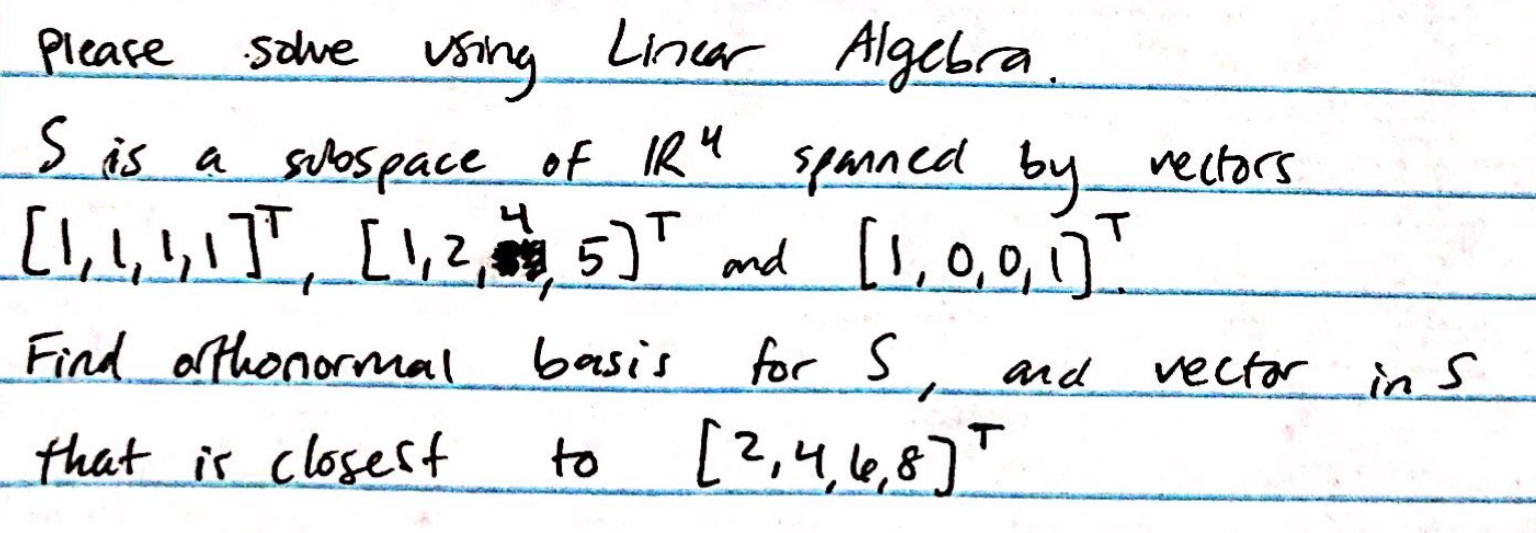 please solve using Linear Algebra.
S is a subspace of ℝ⁴ spanned by vectors
[1,1,1,1]ᵀ, [1,2,4,5]ᵀ and [1,0,0,1]ᵀ.
Find orthonormal basis for S, and vector in S
that is closest to [2,4,6,8]ᵀ